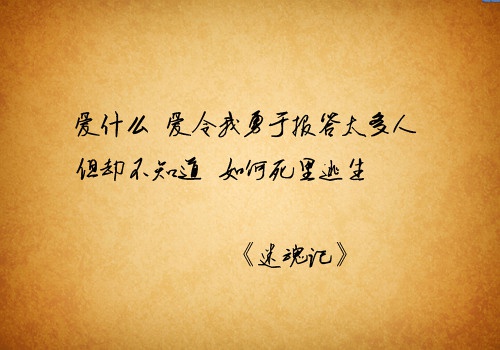 爱什么 爱令我勇于报答太多人
但却不知道 如何死里逃生
《迷魂记》